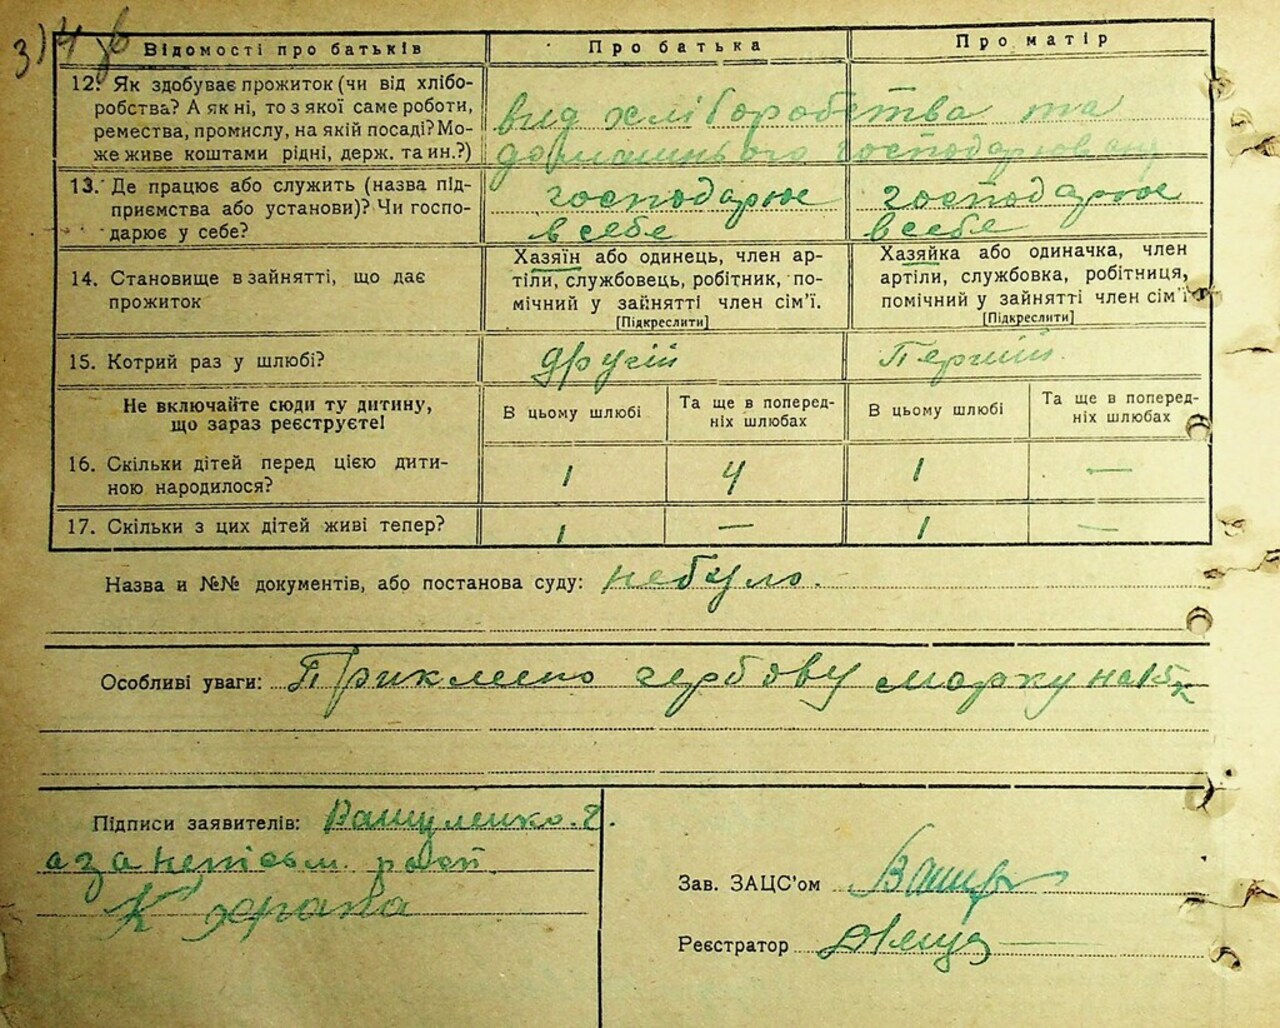 З) 4 зв
Відомості про батьків
Про батька
Про матір
12. Як здобуває прожиток (чи від хлібо-
робства? А як ні, то з якої саме роботи,
ремества, промислу, на якій посаді? Мо-
же живе коштами рідні, держ. та ин.?)
вид хліборобства та
домашнього господарюван
13. Де працює або служить (назва під-
приємства або установи)? Чи госпо-
дарює у себе?
господарює
в себе
господарює
в себе
14. Становище в зайнятті, що дає
прожиток
Хазяїн або одинець, член ар-
тіли, службовець, робітник, по-
мічний у зайнятті член сім'ї.
[Підкреслити]
Хазяйка або одиначка, член
артіли, службовка, робітниця,
помічний у зайнятті член сім'ї
[Підкреслити]
15. Котрий раз у шлюбі?
другий
Перший
Не включайте сюди ту дитину,
що зараз реєструєте!
В цьому шлюбі
Та ще в поперед-
ніх шлюбах
В цьому шлюбі
Та ще в поперед-
ніх шлюбах
16. Скільки дітей перед цією дити-
ною народилося?
1 4 1 —
17. Скільки з цих дітей живі тепер?
1 — 1 —
Назва и №№ документів, або постанова суду: небуло.
Особливі уваги: Приклеено гербову марку на 15 к
Підписи заявителів:
а за неписьм.
К
Зав. ЗАЦС'ом
Реєстратор